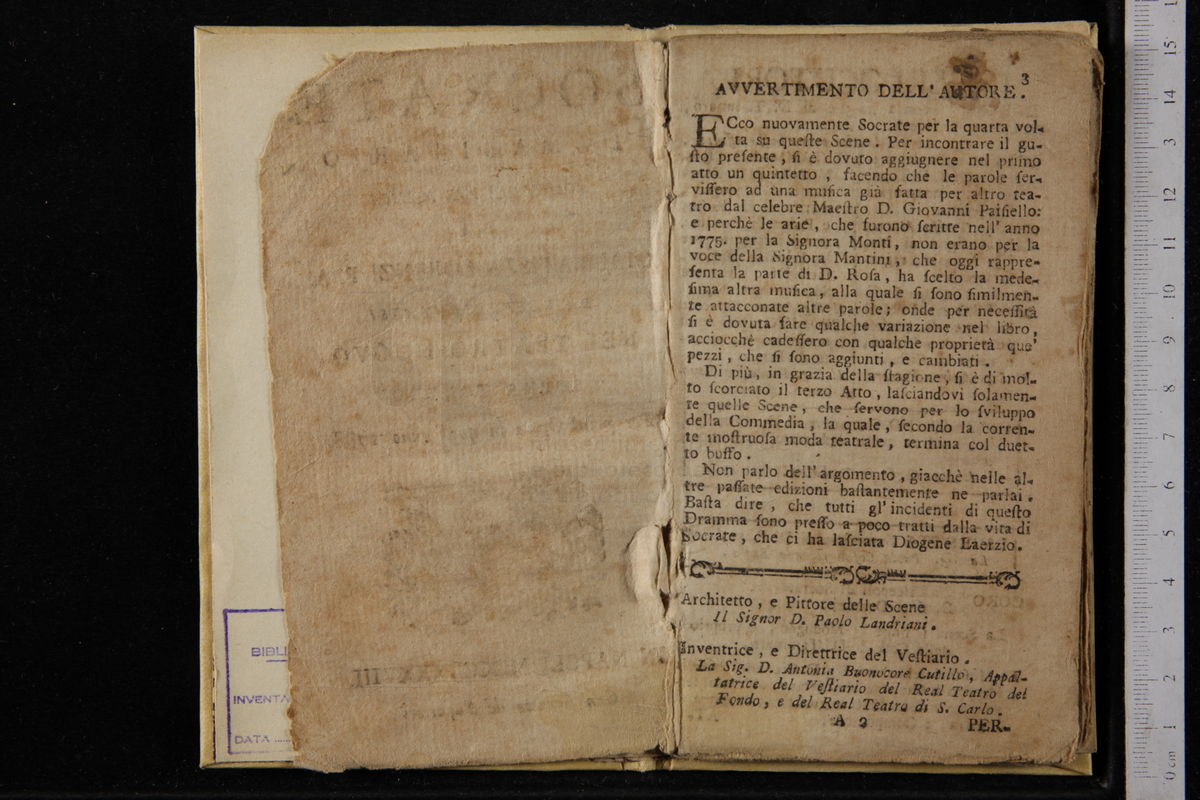 BIBLI
INVENTA
DATA
3
AVVERTIMENTO DELL' AUTORE.
ECco nuovamente Socrate per la quarta vol-
ta su queſte Scene. Per incontrare il gu-
ſto preſente, ſi è dovuto aggiugnere nel primo
atto un quintetto, facendo che le parole ſer-
viſſero ad una muſica già fatta per altro tea-
tro dal celebre Maeſtro D. Giovanni Paiſiello:
e perchè le arie, che furono ſcritte nell' anno
1775. per la Signora Monti, non erano per la
voce della Signora Mantini, che oggi rappre-
ſenta la parte di D. Roſa, ha ſcelto la mede-
ſima altra muſica, alla quale ſi ſono ſimilmen-
te attacconate altre parole; onde per neceſſità
ſi è dovuta fare qualche variazione nel libro,
acciocchè cadeſſero con qualche proprietà que'
pezzi, che ſi ſono aggiunti, e cambiati.
Di più, in grazia della ſtagione, ſi è di mol-
to ſcorciato il terzo Atto, laſciandovi ſolamen-
te quelle Scene, che ſervono per lo ſviluppo
della Commedia, la quale, ſecondo la corren-
te moſtruoſa moda teatrale, termina col duet-
to buffo.
Non parlo dell'argomento, giacchè nelle al-
tre paſſate edizioni baſtantemente ne parlai.
Baſta dire, che tutti gl'incidenti di queſto
Dramma ſono preſſo a poco tratti dalla vita di
Socrate, che ci ha laſciata Diogene Laerzio.
Architetto, e Pittore delle Scene
Il Signor D. Paolo Landriani.
Inventrice, e Direttrice del Veſtiario.
La Sig. D. Antonia Buonocore Cutillo, Appal-
tatrice del Veſtiario del Real Teatro del
Fondo, e del Real Teatro di S. Carlo.
A 2 PER-